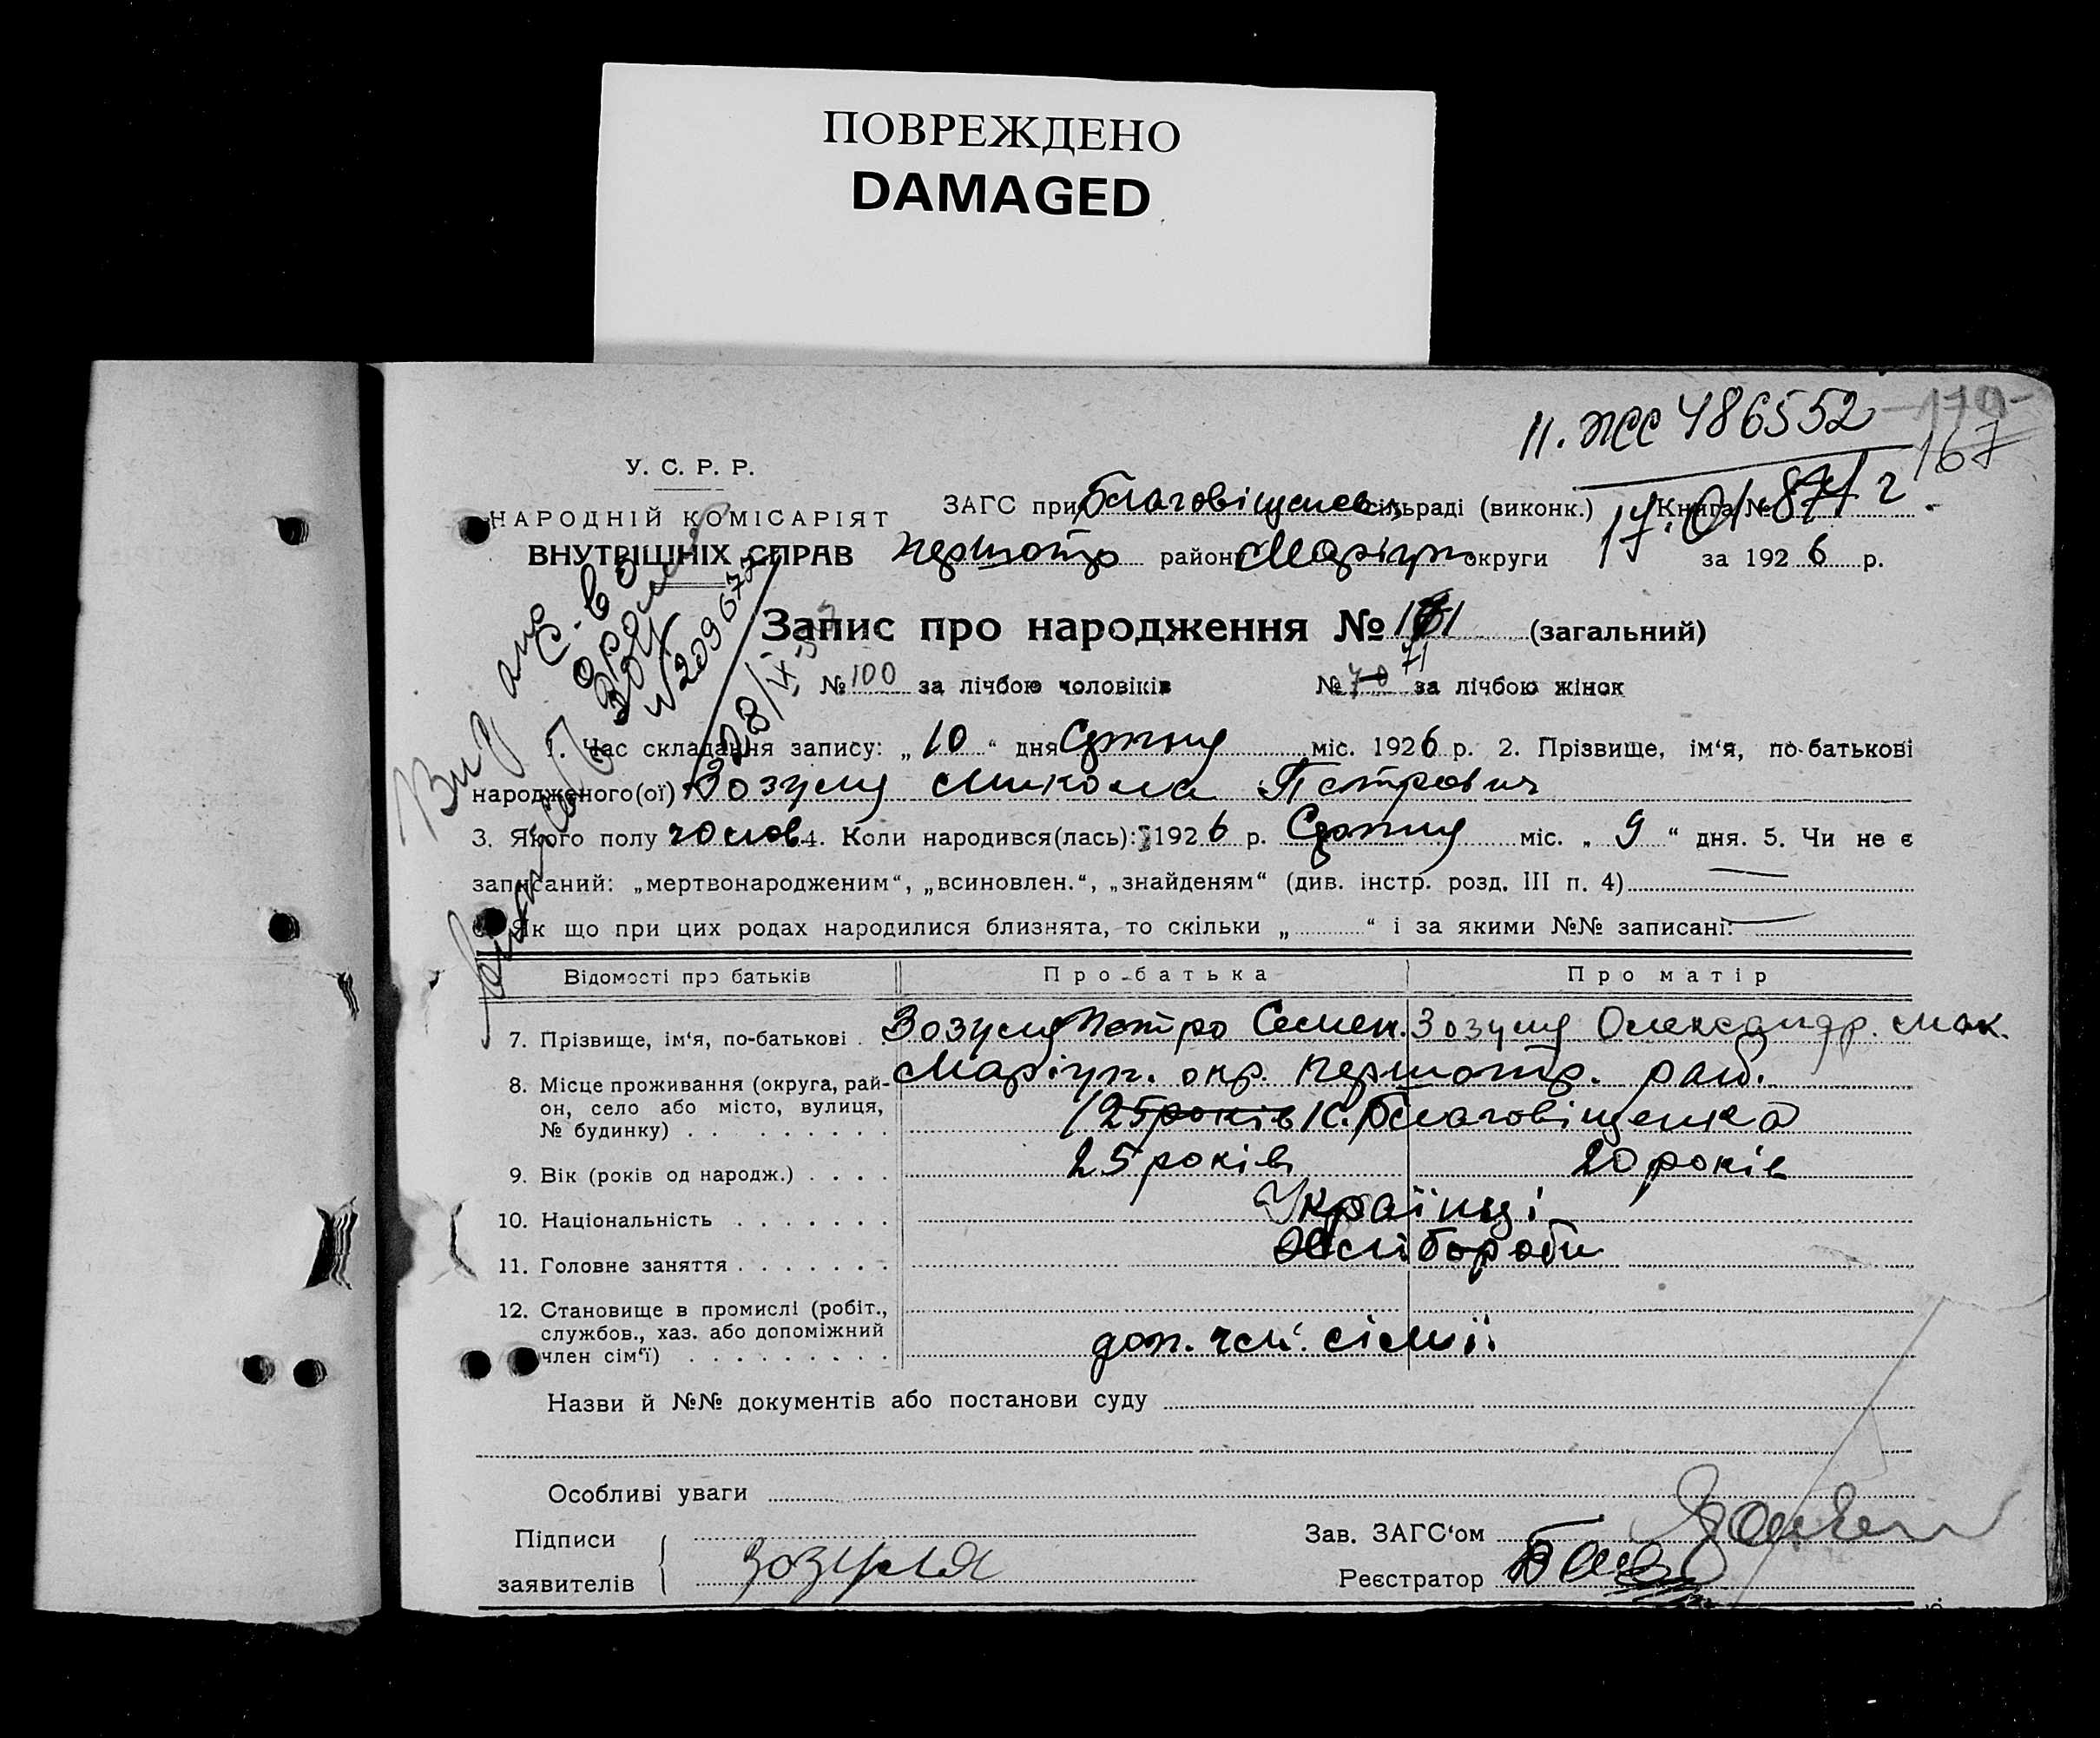 ПОВРЕЖДЕНО
DAMAGED
II. ЖСС 486552 -179-
167
У. С. Р. Р.
НАРОДНІЙ КОМІСАРІЯТ
ВНУТРІШНІХ СПРАВ
ЗАГС при Благовіщенськ. сільраді (виконк.) Книга №
17.01.87 г.
Першотр району Маріуп округи за 1926 р.
Запис про народження № (загальний)
№ 100 за лічбою чоловіків № 70 71 за лічбою жінок
1. Час складання запису: „10“ дня Сітня міс. 1926 р. 2. Прізвище, ім‘я, по-батькові
народженого(ої) Зозуля Микола Петрович
3. Якого полу чолов. 4. Коли народився(лась): 1926 р. Сітня міс. „9“ дня. 5. Чи не є
записаний: „мертвонародженим“, „всиновлен.“, „знайденям“ (див. інстр. розд. III п. 4)
Як що при цих родах народилися близнята, то скільки „ “ і за якими №№ записані:
Відомості про батьків Про батька Про матір
7. Прізвище, ім‘я, по-батькові Зозуля Петро Семен. Зозуля Олександр. Мак.
8. Місце проживання (округа, рай- Маріуп. окр. Першотр. рай.
он, село або місто, вулиця, 25 років с. Благовіщенка
№ будинку)
9. Вік (років од народж.) 25 років 20 років
10. Національність Українці
11. Головне заняття Хлібороби
12. Становище в промислі (робіт.,
службов., хаз. або допоміжний
член сім‘ї) доп. чл. сімї.
Назви й №№ документів або постанови суду
Особливі уваги
Підписи
заявителів Зозуля
Зав. ЗАГС‘ом
Реєстратор